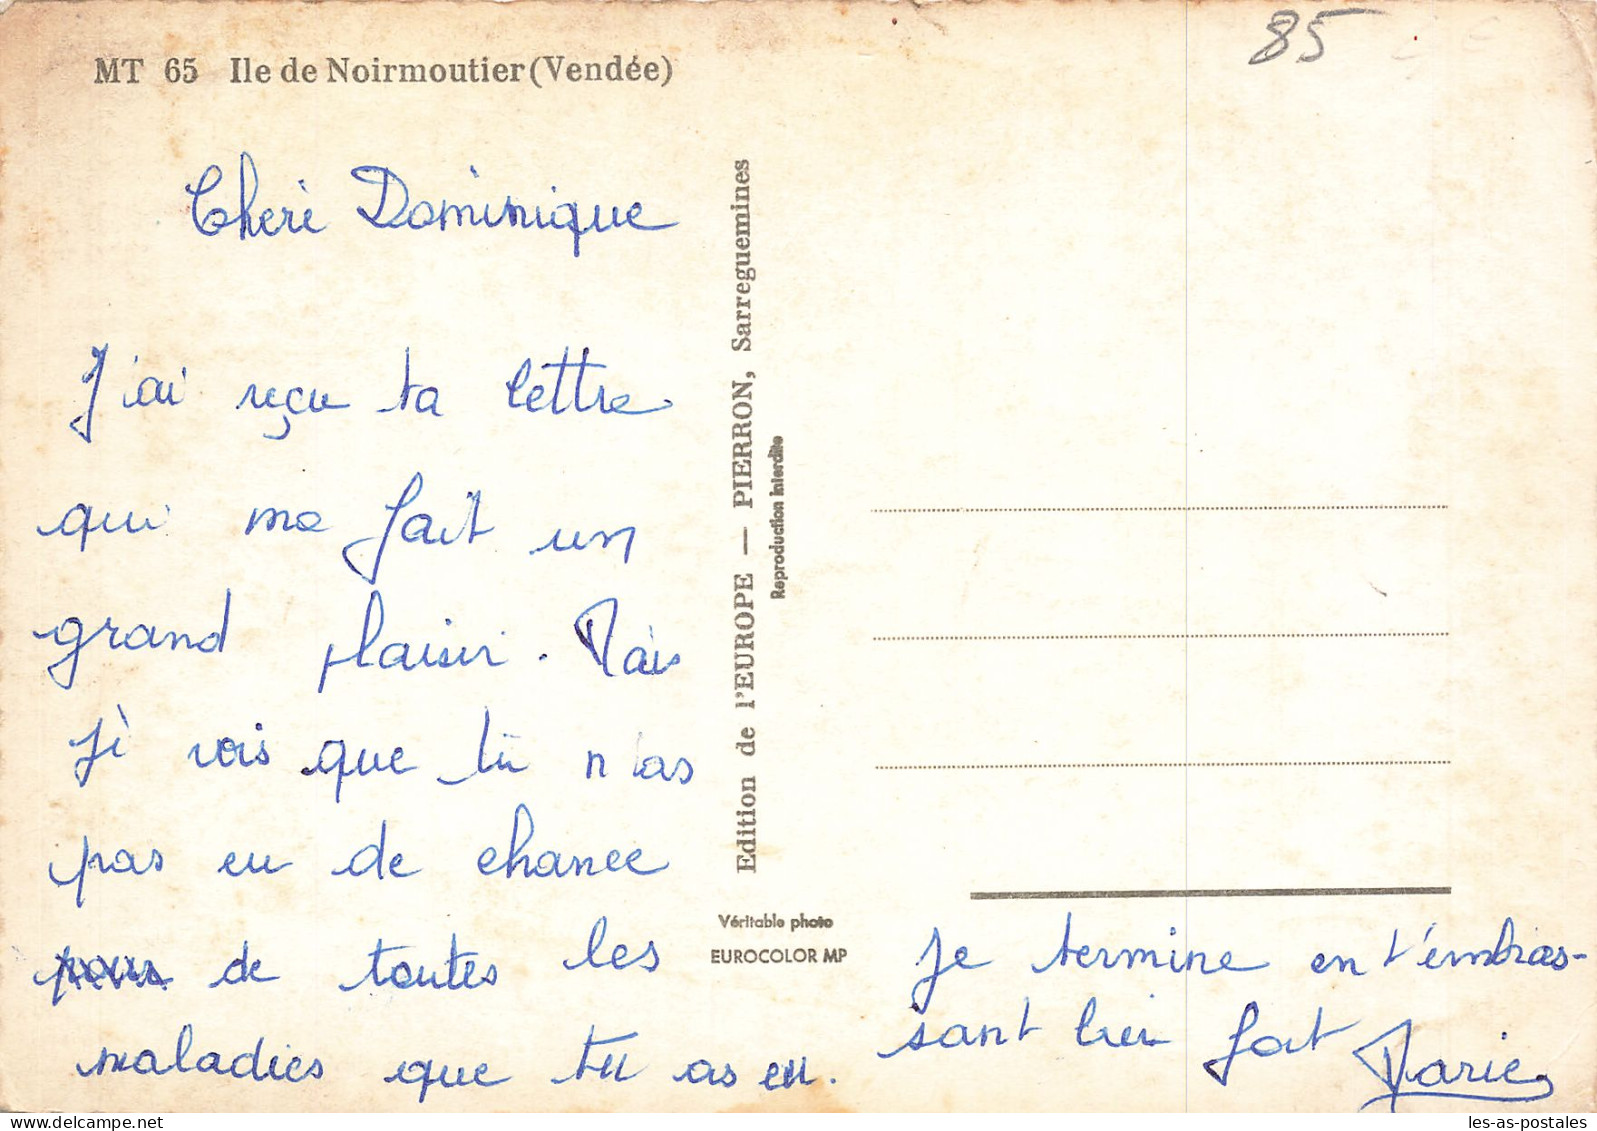 MT 65 Ile de Noirmoutier (Vendée)
85
Chèrè Dominique
J'ai reçu ta lettre
qui me fait un
grand plaisir. Mais
je vois que tu n'as
pas eu de chance
pour de toutes les
maladies que tu as eu.
Edition de l'EUROPE — PIERRON, Sarreguemines
Reproduction interdite
Véritable photo
EUROCOLOR MP
Je termine en t'émbras-
sant bien fort
Marie
les-as-postales